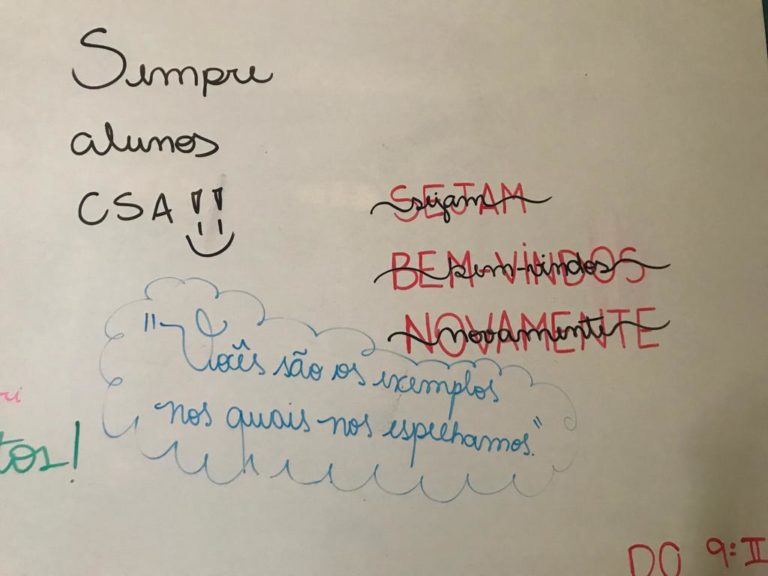 Sempre
alunos
CSA!!
SEJAM
sejam
BEM-VINDOS
bem-vindos
NOVAMENTE
novamente
"Vocês são os exemplos
nos quais nos espelhamos."
tos!
DO 9:II